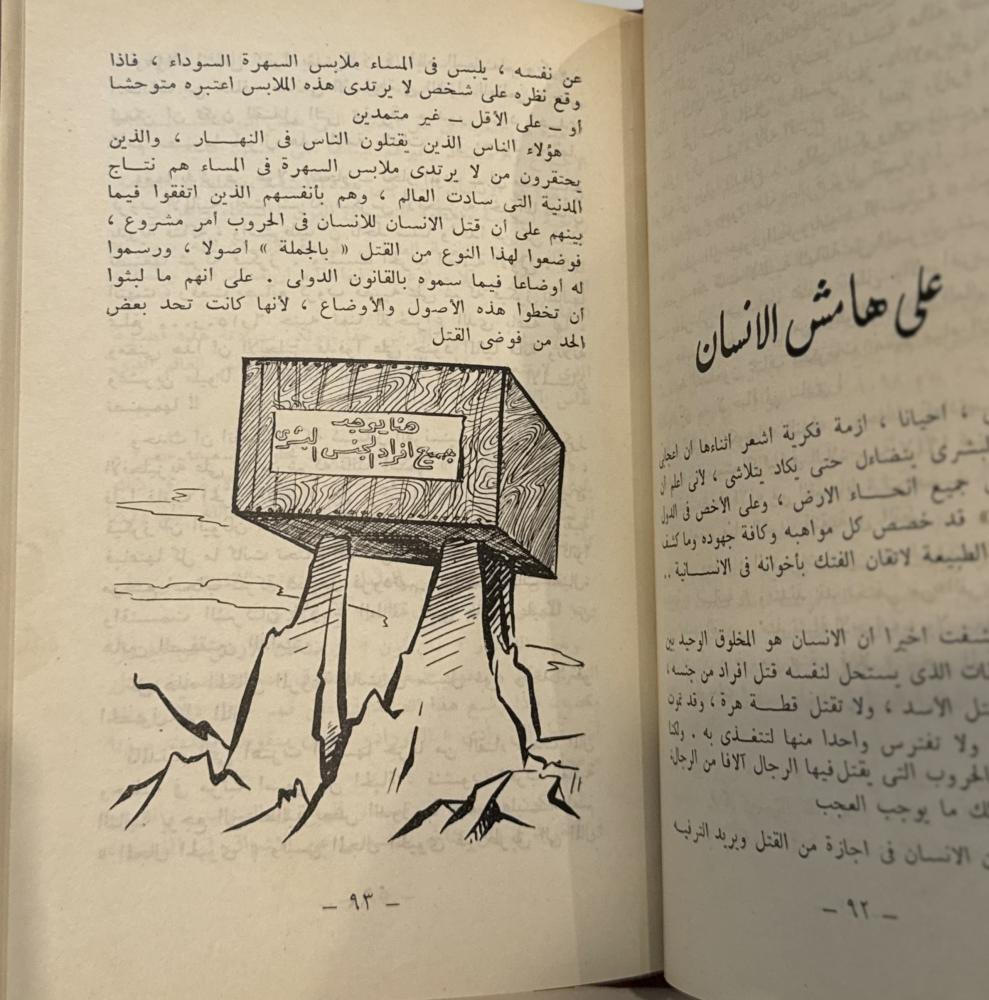 على هامش الانسان
، احيانا ، ازمة فكرية أشعر اثناءها ان اعجابى
البشرى يتضاءل حتى يكاد يتلاشى ، لأنى أعلم أن
جميع انحاء الارض ، وعلى الأخص فى الدول
» قد خصص كل مواهبه وكافة جهوده وما كشف
الطبيعة لاتقان الفتك بأخوانه فى الانسانية ..
اخيرا ان الانسان هو المخلوق الوحيد بين
الذى يستحل لنفسه قتل افراد من جنسه ،
الأسد ، ولا تقتل قطة هرة ، وقد تموت
ولا تفترس واحدا منها لتتغذى به . ولكنا
الحروب التى يقتل فيها الرجال آلافا من الرجال
ما يوجب العجب
الانسان فى اجازة من القتل ويريد الترفيه
— ٩٢ —
عن نفسه ، يلبس فى المساء ملابس السهرة السوداء ، فاذا
وقع نظره على شخص لا يرتدى هذه الملابس اعتبره متوحشا
أو — على الأقل — غير متمدين
هؤلاء الناس الذين يقتلون الناس فى النهار ، والذين
يحتقرون من لا يرتدى ملابس السهرة فى المساء هم نتاج
المدنية التى سادت العالم ، وهم بأنفسهم الذين اتفقوا فيما
بينهم على أن قتل الانسان للانسان فى الحروب أمر مشروع ،
فوضعوا لهذا النوع من القتل « بالجملة » أصولا ، ورسموا
له أوضاعا فيما سموه بالقانون الدولى . على انهم ما لبثوا
أن تخطوا هذه الأصول والأوضاع ، لأنها كانت تحد بعض
الحد من فوضى القتل
هنا يوجد
جميع افراد الجنس البشرى
— ٩٣ —